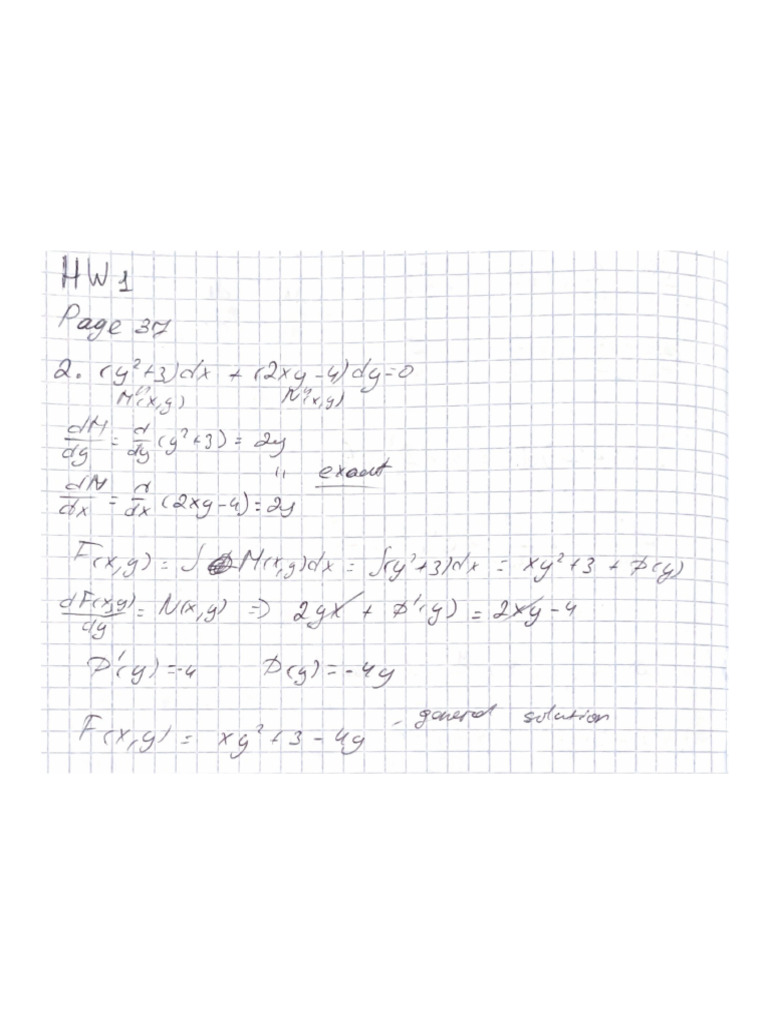 HW 1
Page 37
2. (y²+3)dx + (2xy-4)dy=0
M(x,y) N(x,y)
dM/dy = d/dy (y²+3) = 2y
" exact
dN/dx = d/dx (2xy-4) = 2y
F(x,y) = ∫ M(x,y)dx = ∫(y²+3)dx = xy²+3 + Φ(y)
dF(x,y)/dy = N(x,y) => 2yx + Φ'(y) = 2xy-4
Φ'(y)=-4 Φ(y)=-4y
F(x,y) = xy²+3-4y - general solution